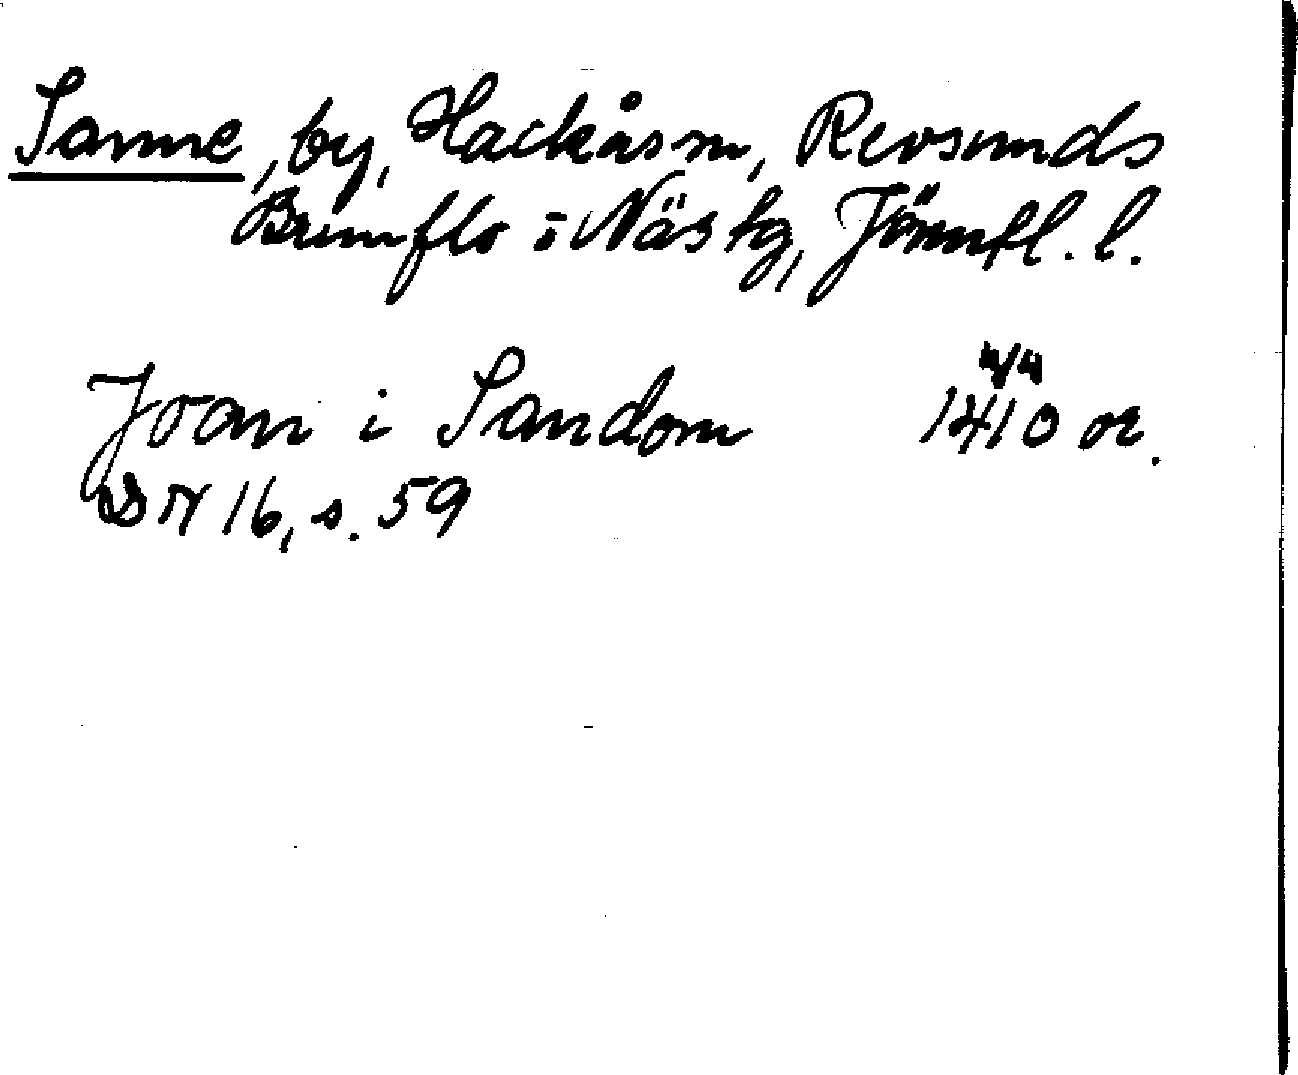 Sanne, by, Hackås sn, Revsunds
Brunflo i Näs tg, Jämtl. l.
Joan i Sandom 1410 or.
DN 16, s. 59